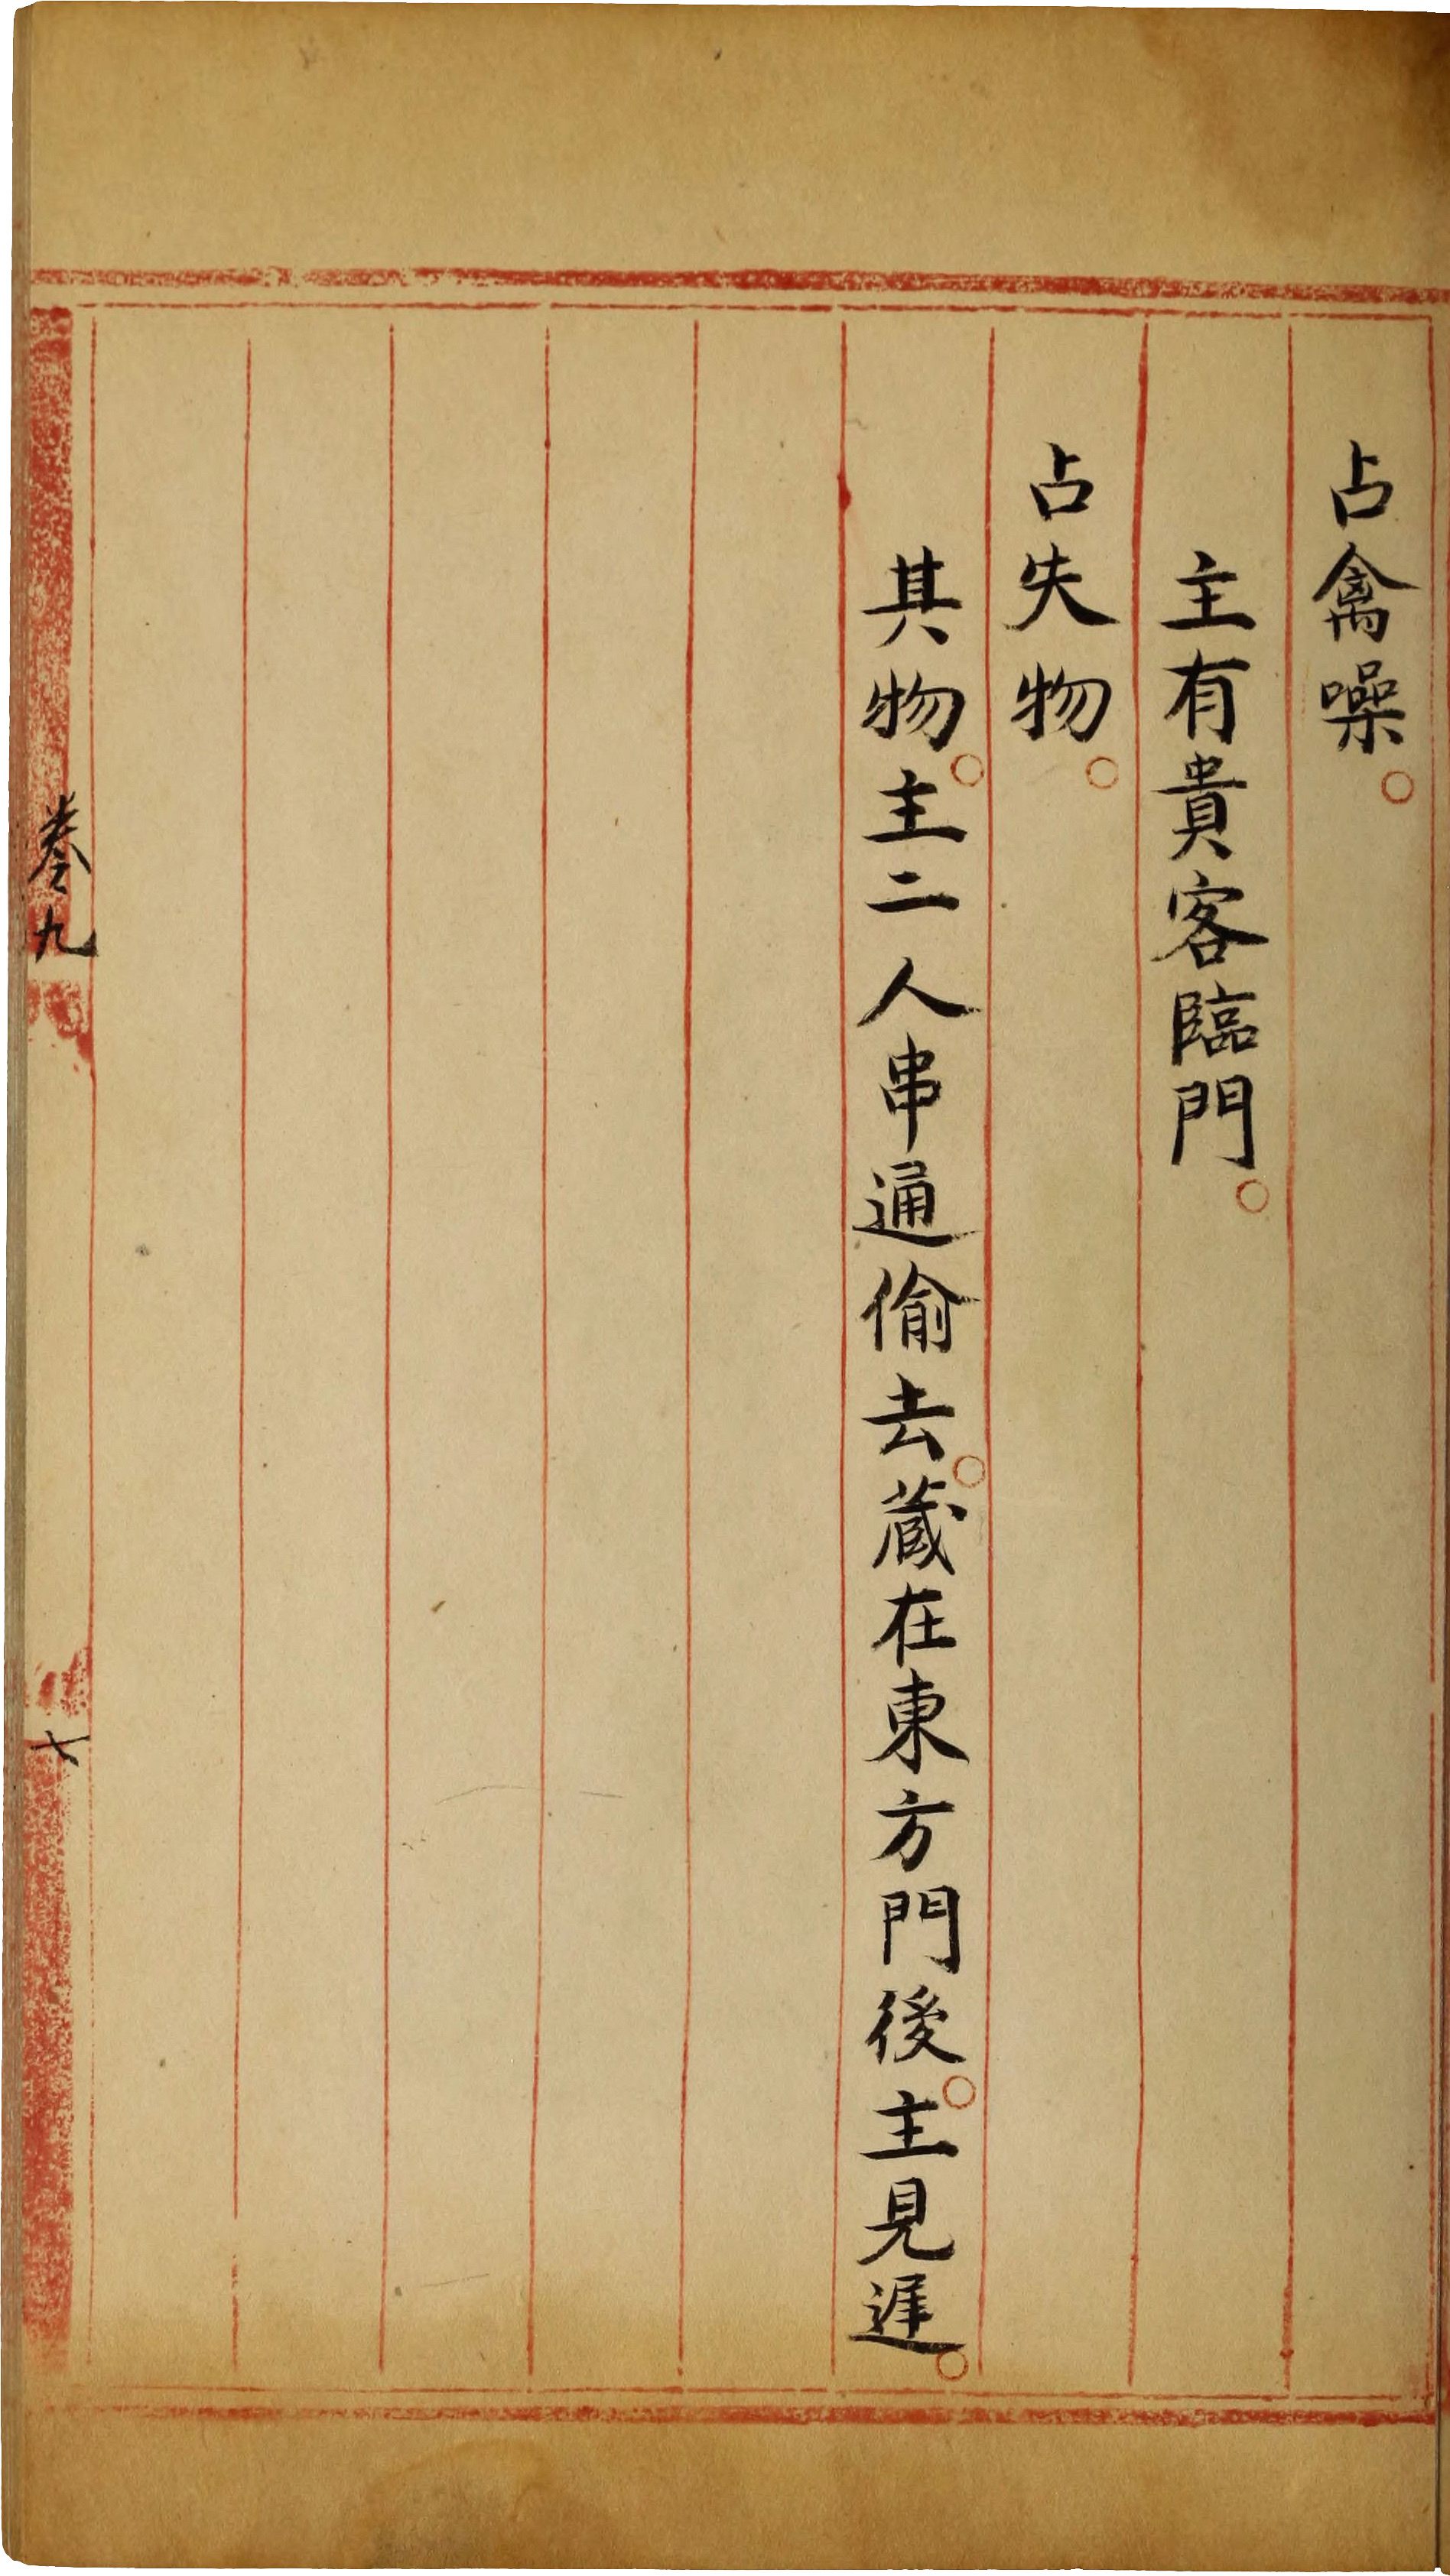 占禽噪。
主有貴客臨門。
占失物。
其物。主二人串通偷去。藏在東方門後。主見遲。
卷九
七